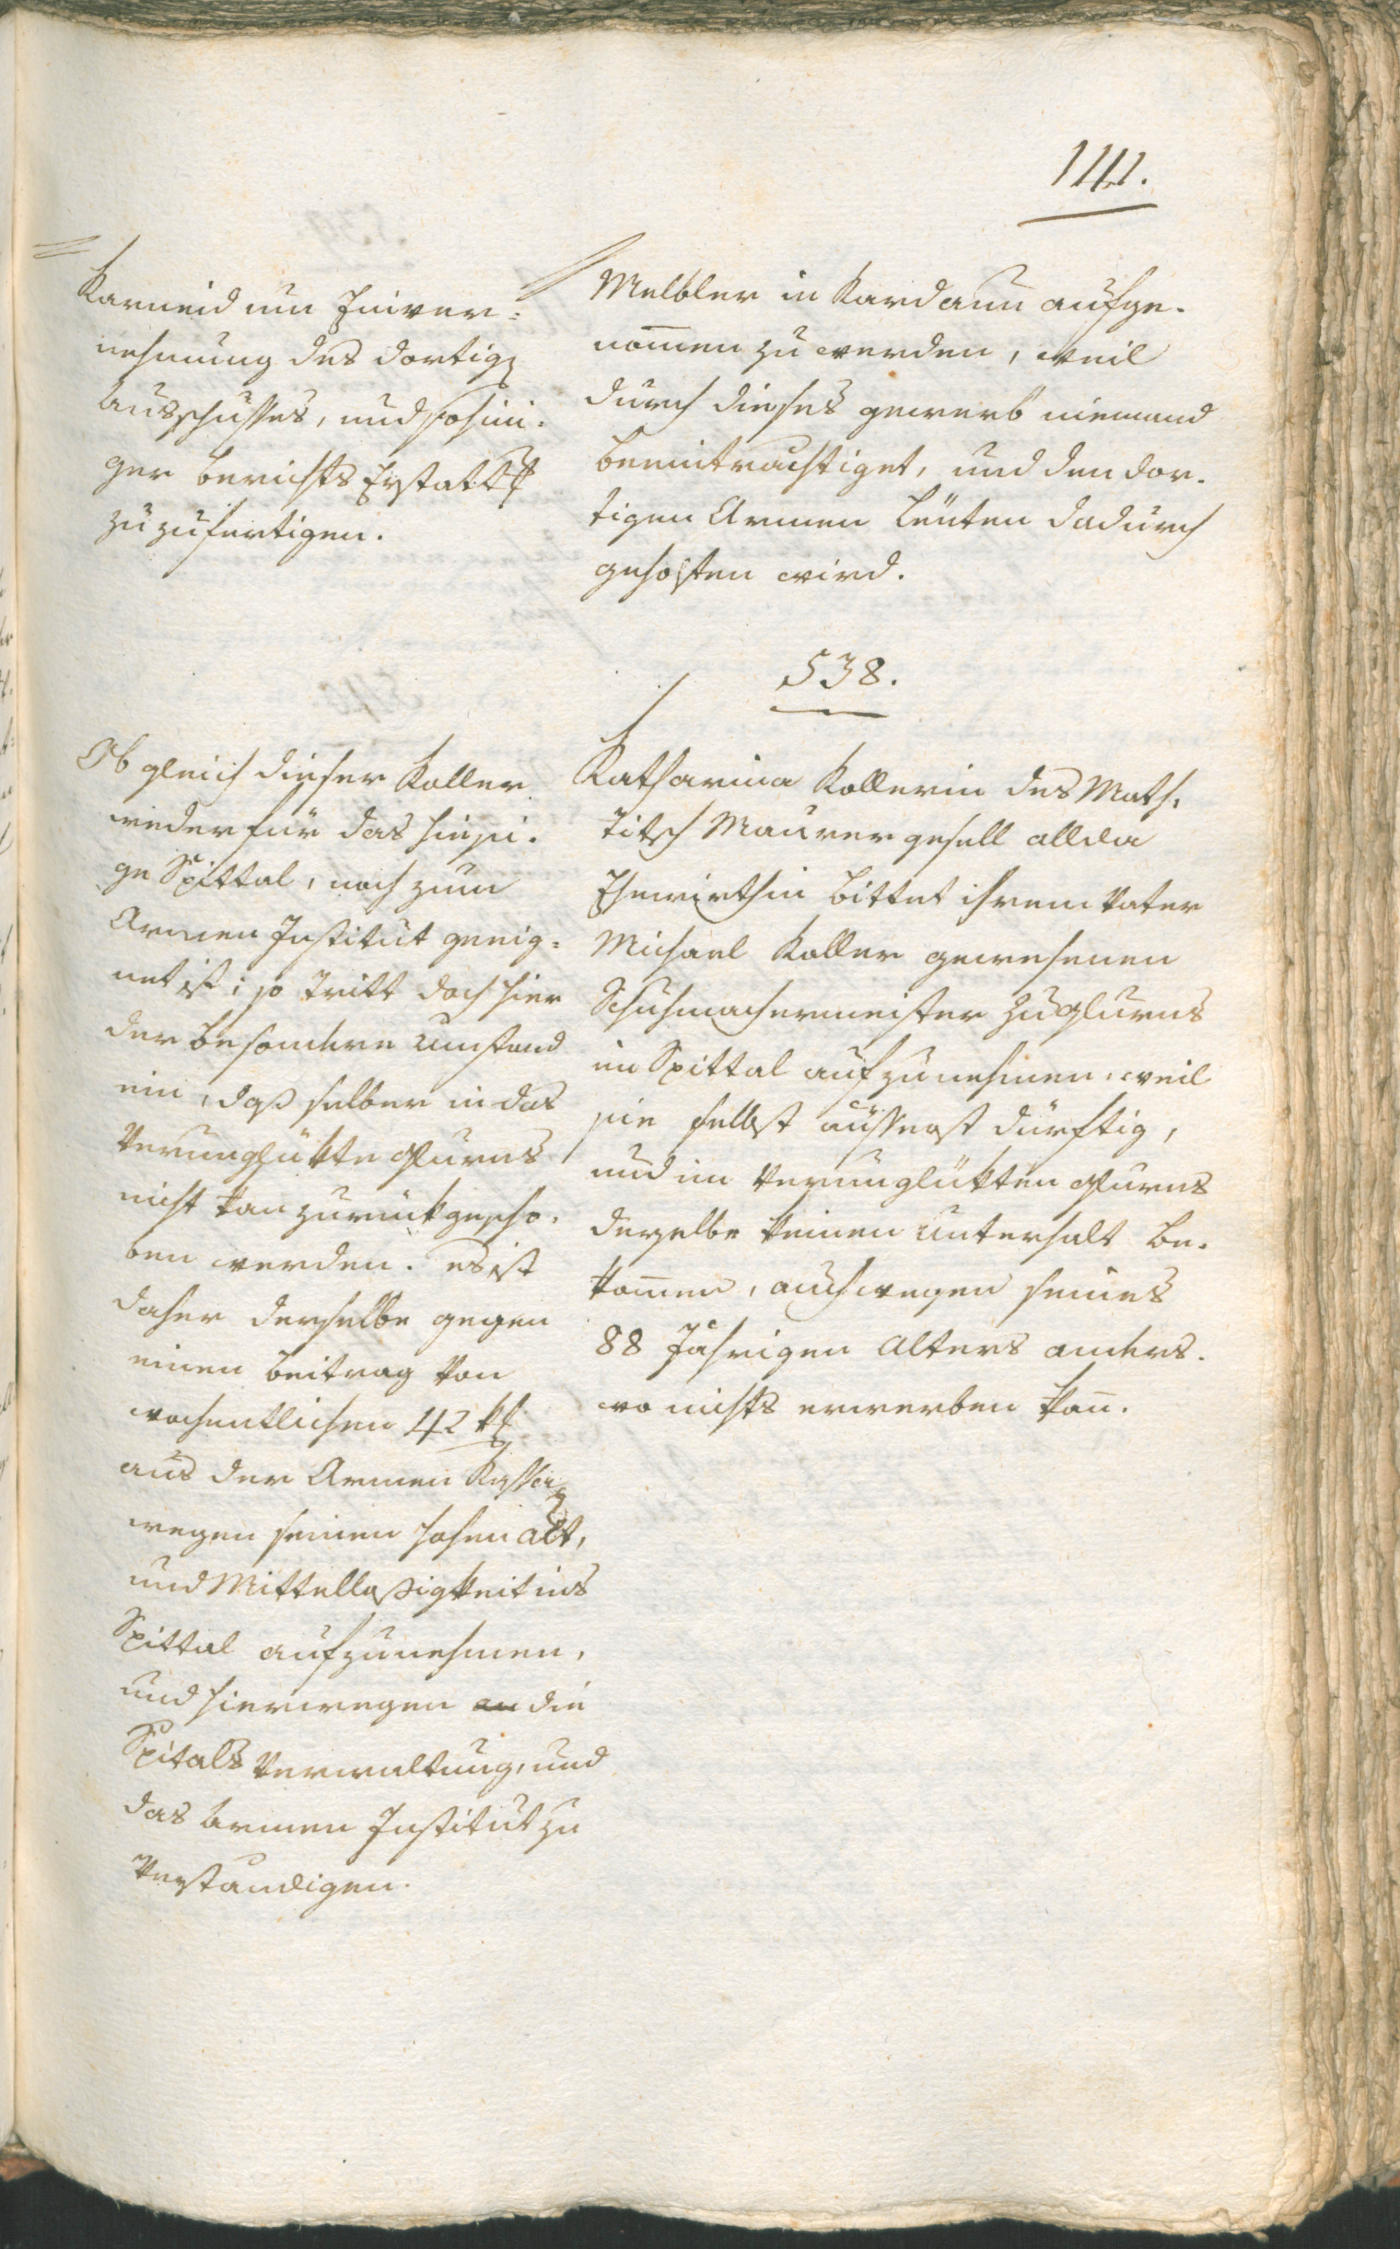 1141.
Karneid um Einver=
nehmung des dortigen
Ausschusses, und sohini=
ger Berichts Erstattung
zuzufertigen.
Melbler in Kardaun aufge-
nommen zu werden, weil
durch dieses gewerb niemand
beeintrachtiget, und den dor-
tigen Armen Leuten dadurch
geholfen wird.
538.
Obgleich dieser Koller
weder für das hiesi-
ge Spittal, noch zum
Armen Institut geeig=
net ist; so tritt doch hier
der besondere Umstand
ein, daß selber in das
Verunglükte Glurns
nicht kan zurückgescho-
ben werden. es ist
daher derselbe gegen
einen Beitrag von
wochentlichen 42 kr
aus der Armen Kassa
wegen seinen hohen Alt,
und Mittellosigkeit ins
Spittal aufzunehmen,
und hierwegen an die
Spitals Verwaltung, und
das Armen Institut zu
Verständigen.
Katharina Kollerin des Math.
Titsch Maurergesell allda
Ehewirthin bittet ihrem Vater
Michael Koller gewesenen
Schuhmachermeister zu Glurns
im Spittal aufzunehmen, weil
sie selbst äusserst dürftig,
und im Verunglükten Glurns
derselbe keinen Unterhalt be-
kommen, auch wegen seines
88 Jährigen Alters anders-
wo nichts erwerben kann.